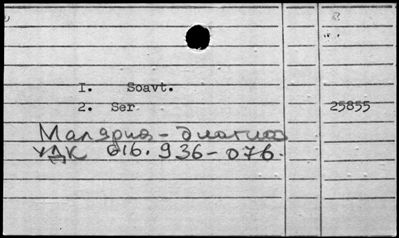 I. Soavt.
2. Ser 25855
Малярия - диагноз
УДК 616.936-076.